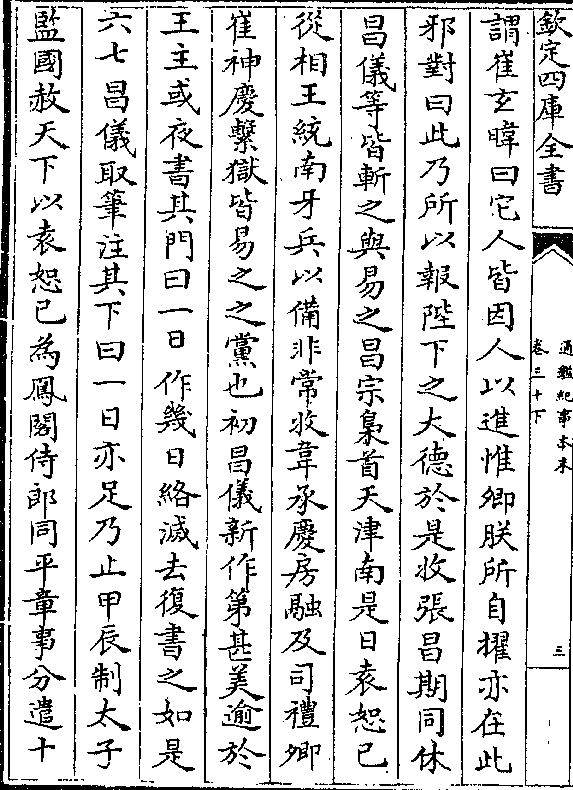 欽定四庫全書
通鑑紀事本末
卷三十下
三
謂崔玄暐曰它人皆因人以進惟卿朕所自擢亦在此
邪對曰此乃所以報陛下之大德於是收張昌期同休
昌儀等皆斬之與易之昌宗梟首天津南是日袁恕已
從相王統南牙兵以備非常收韋承慶房融及司禮卿
崔神慶繫獄皆易之之黨也初昌儀新作第甚美逾於
王主或夜書其門曰一日作幾日絡滅去復書之如是
六七昌儀取筆注其下曰一日亦足乃止甲辰制太子
監國赦天下以袁恕已為鳳閣侍郎同平章事分遣十